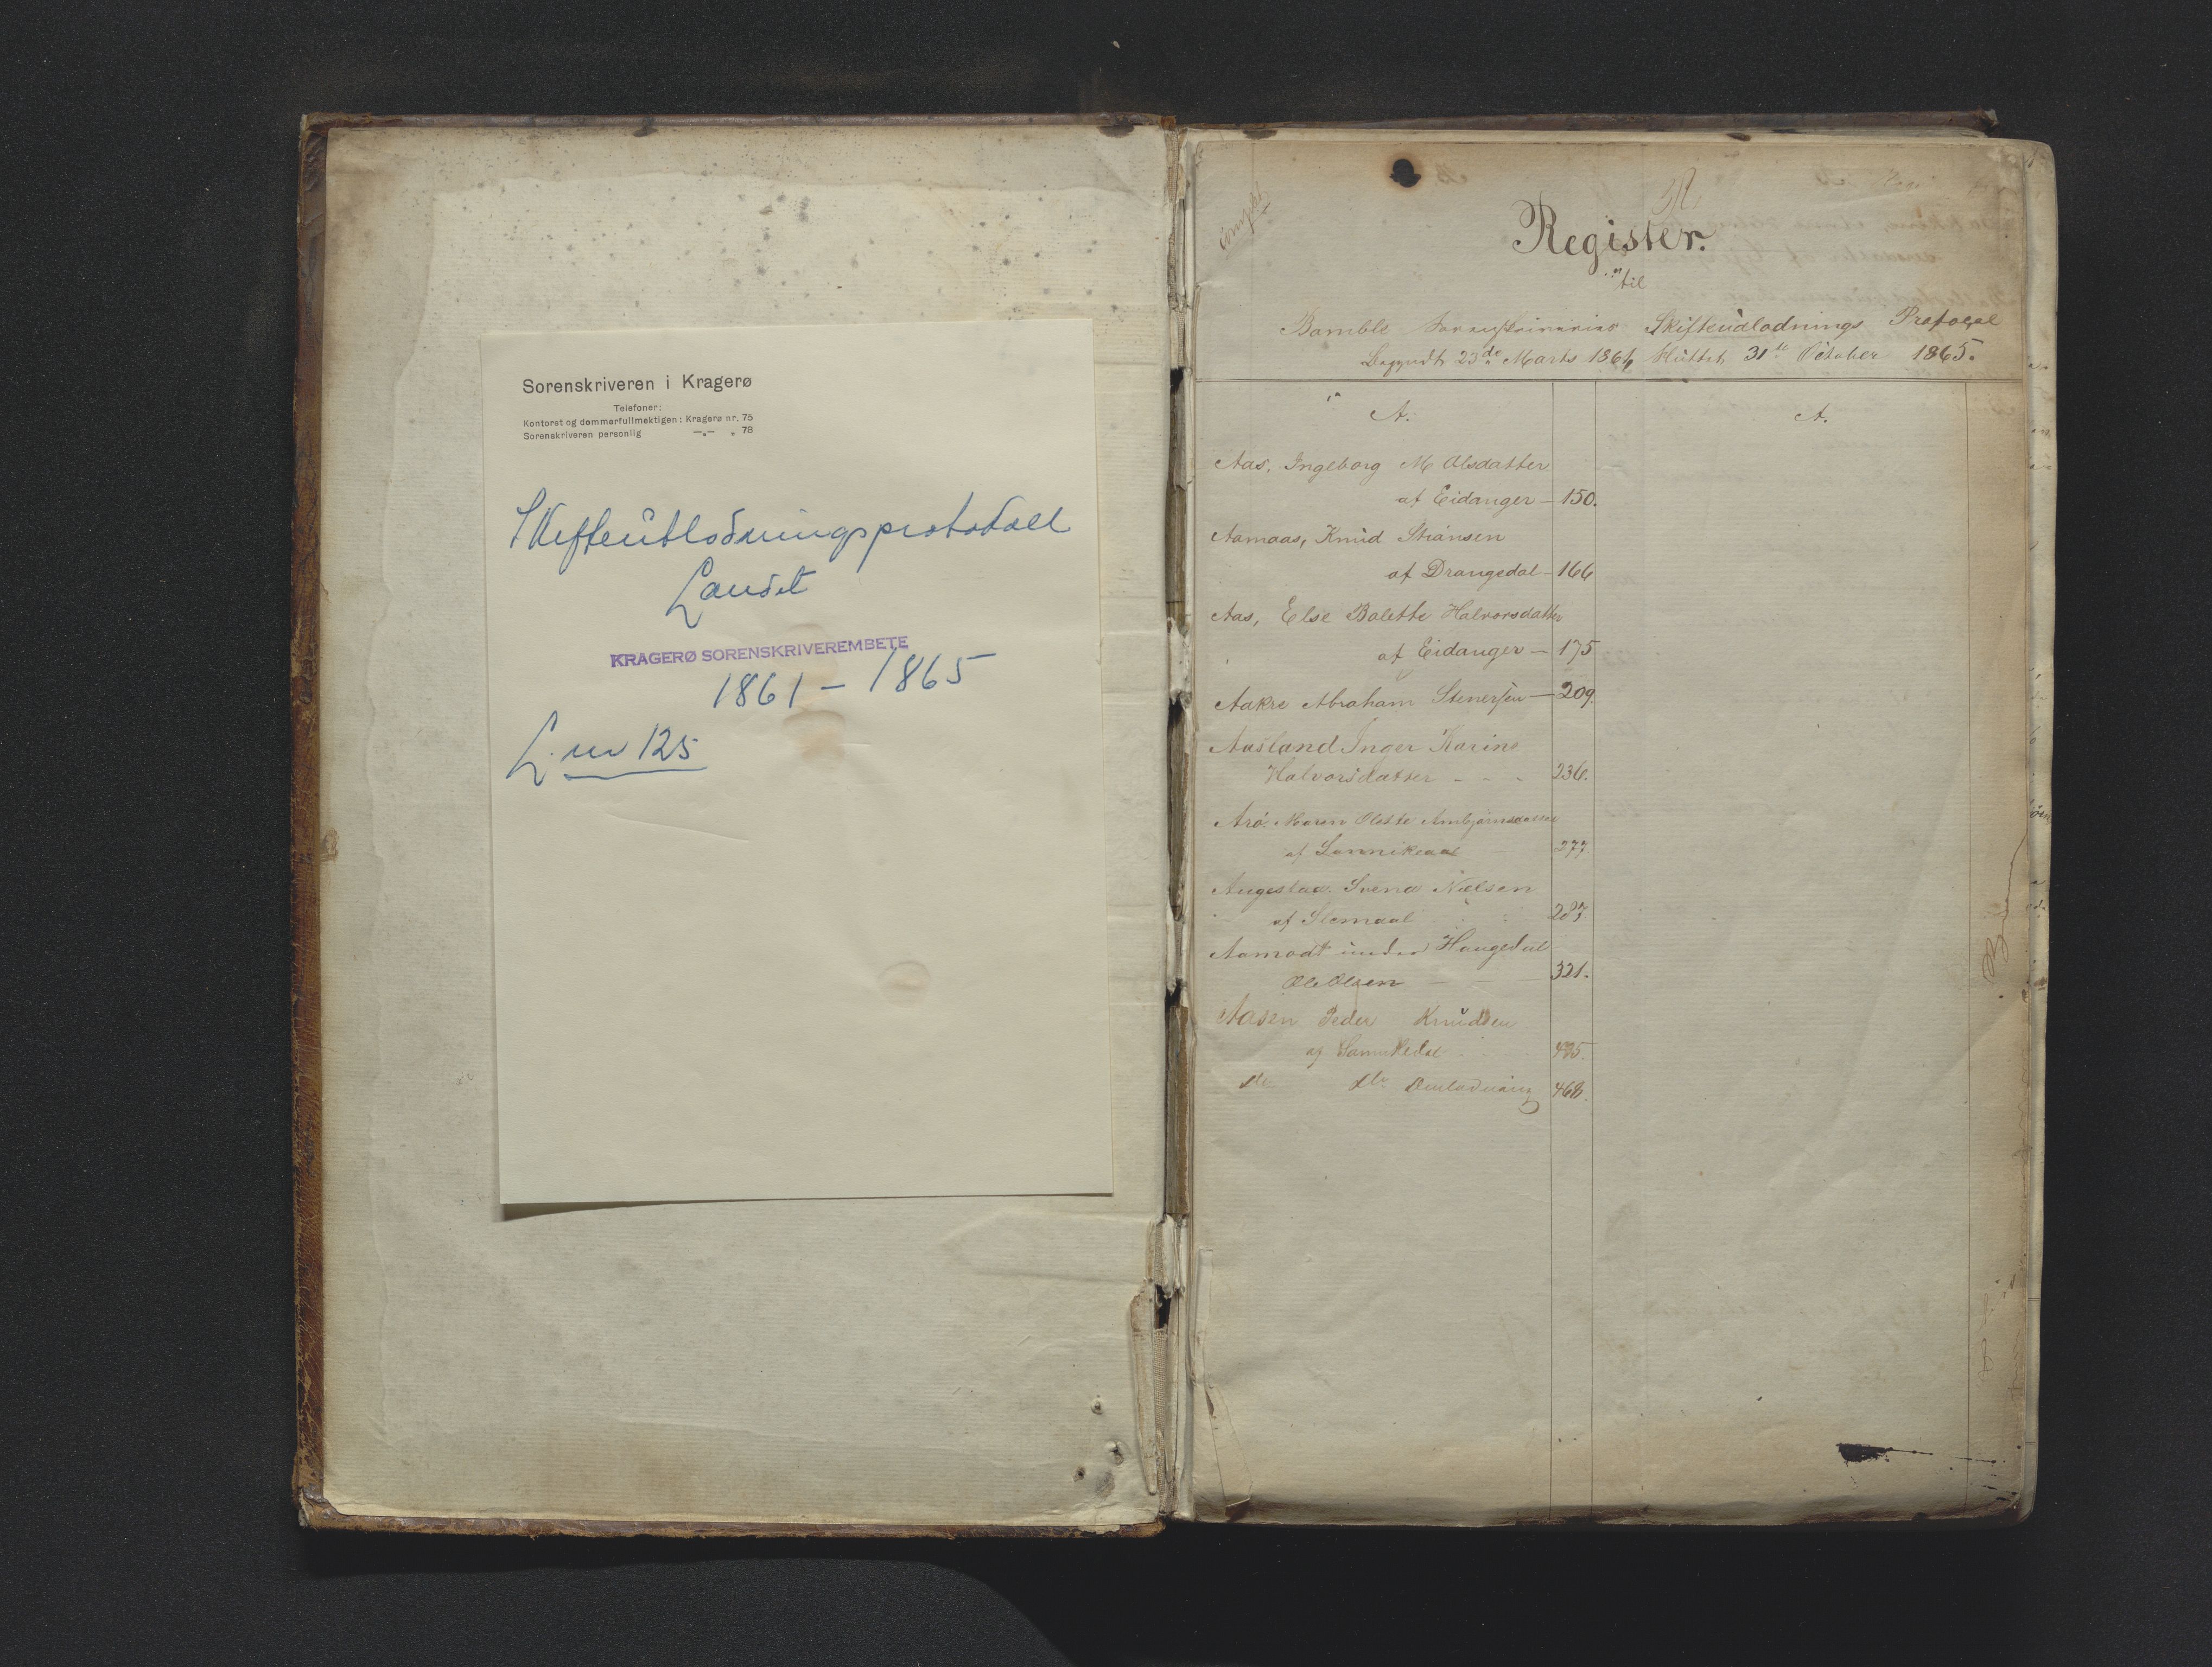 Sorenskriveren i Kragerø
Telefoner:
Kontoret og dommerfullmektigen: Kragerø nr. 75
Sorenskriveren personlig —„— „ 78
Skifteutlodningsprotokoll
Landet
KRAGERØ SORENSKRIVEREMBETE
1861 – 1865
L. nr 125
Register.
til
Bamble Sorenskriveries Skifteudlodnings Protocol
Begyndt 23de Marts 1861, sluttet 31te October 1865.
A.
A.
Aas, Ingeborg M Olsdatter
af Eidanger — 150.
Aamaas, Knud Stiansen
af Drangedal — 166
Aas, Else Bolette Halvorsdatter
af Eidanger — 175
Aakre Abraham Stenersen — 209.
Aasland Inger Karine
Halvorsdatter - - - 236.
Arö. Maren Olette Ambjørnsdatter
af Sannikedal 277.
Svend Nielsen
af 287.
Aamodt under Haugedal
Ole Olsen — 321.
Aasen Peder Knudsen
af Sannikedal 495.
do do Omlodning 468.